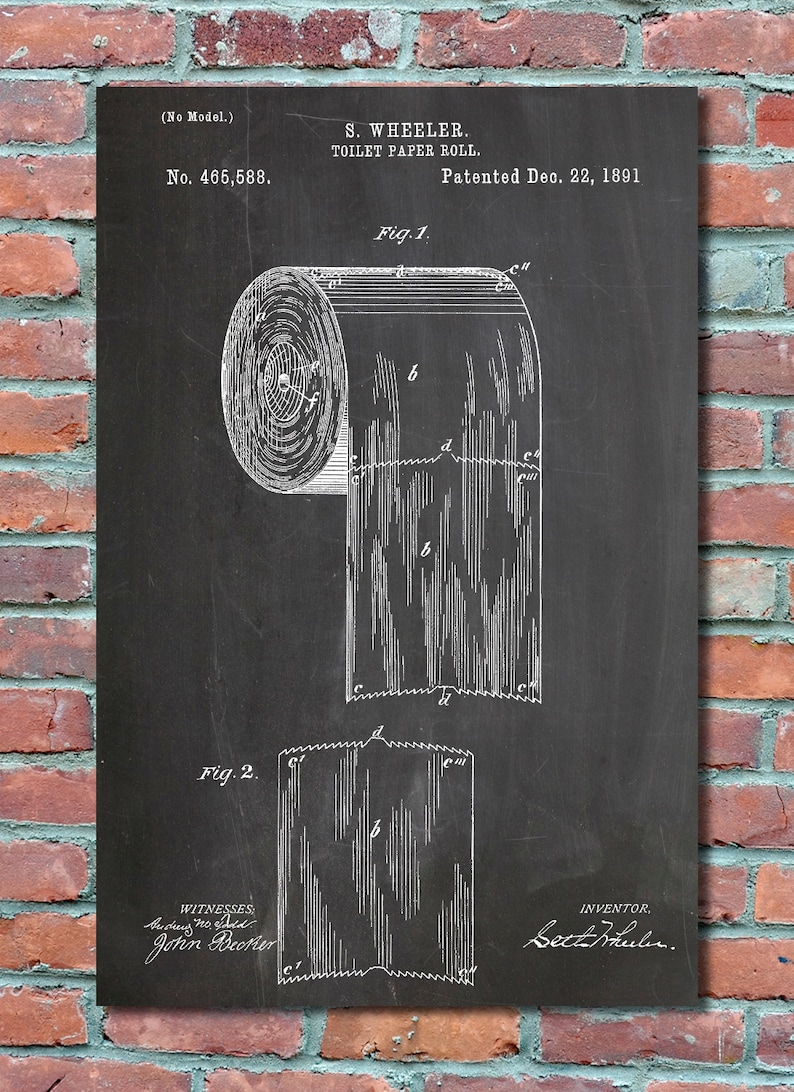 (No Model.)
S. WHEELER.
TOILET PAPER ROLL.
No. 465,588.
Patented Dec. 22, 1891
Fig. 1.
c d c"
c' c'''
a
e
b
f
d
c c"
c' c'''
b
c d c"
d
Fig. 2.
c' c'''
b
WITNESSES;
John Becker
INVENTOR,
Seth Wheeler.
c' c"